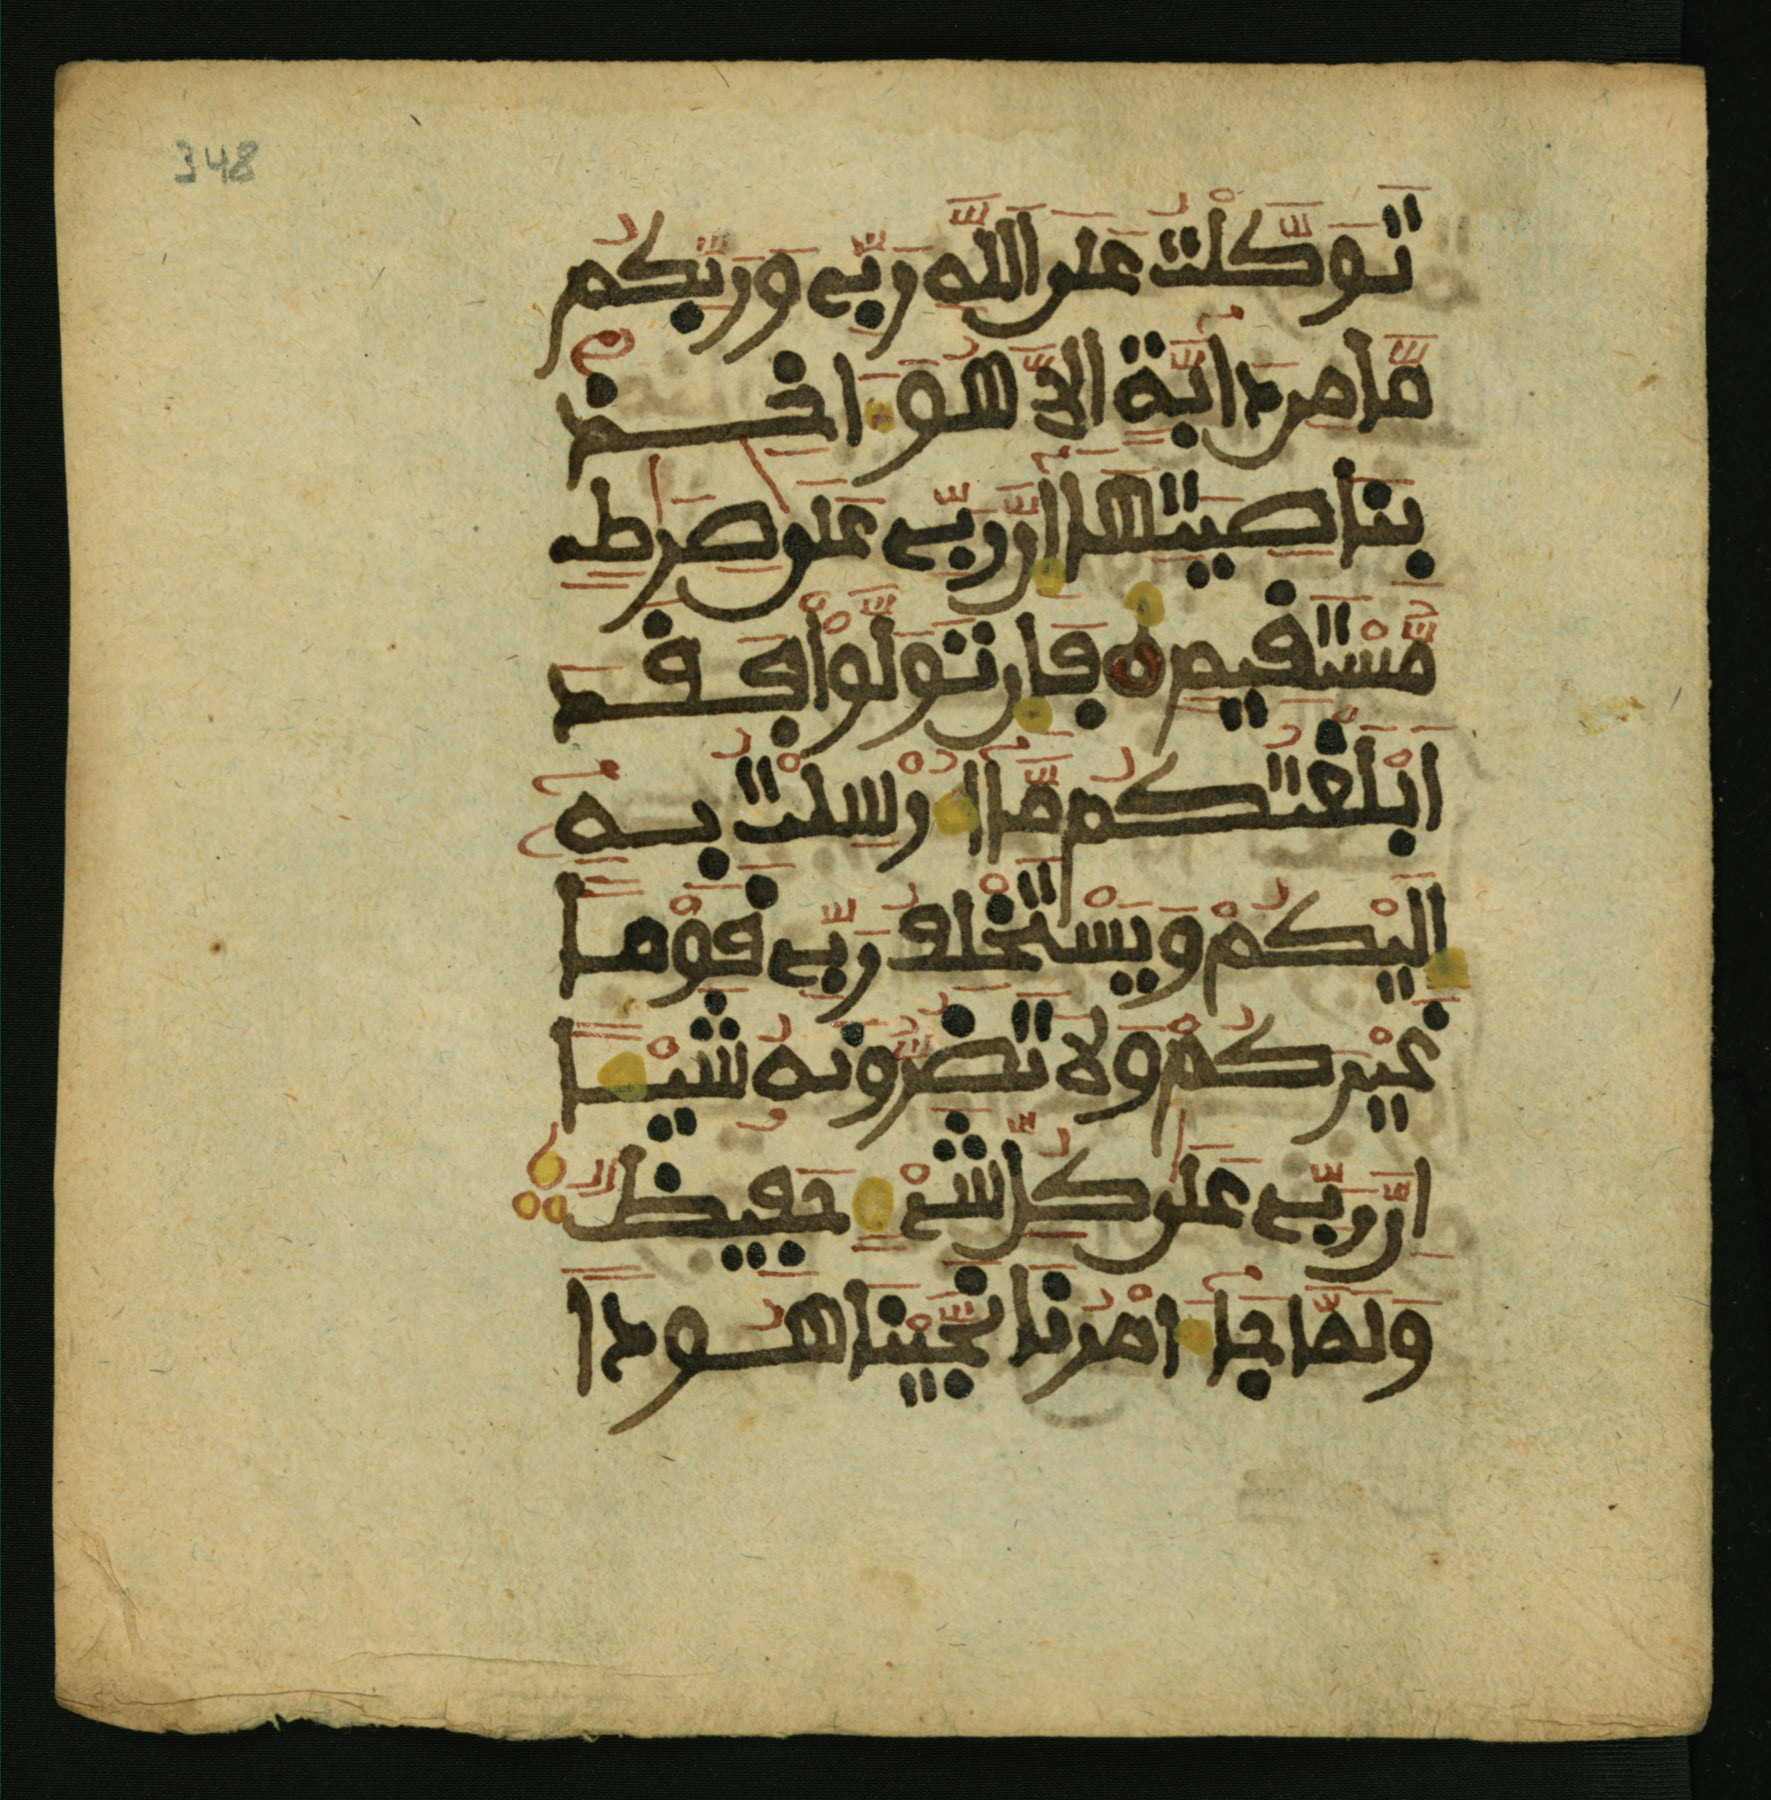 348
توكلت على الله ربي وربكم
ما من دابة الا هو اخذ
بناصيتها ان ربي على صرط
مستقيم فان تولوا فقد
ابلغتكم ما ارسلت به
اليكم ويستخلف ربي قوما
غيركم ولا تضرونه شيا
ان ربي على كل شي حفيظ
ولما جا امرنا نجينا هودا